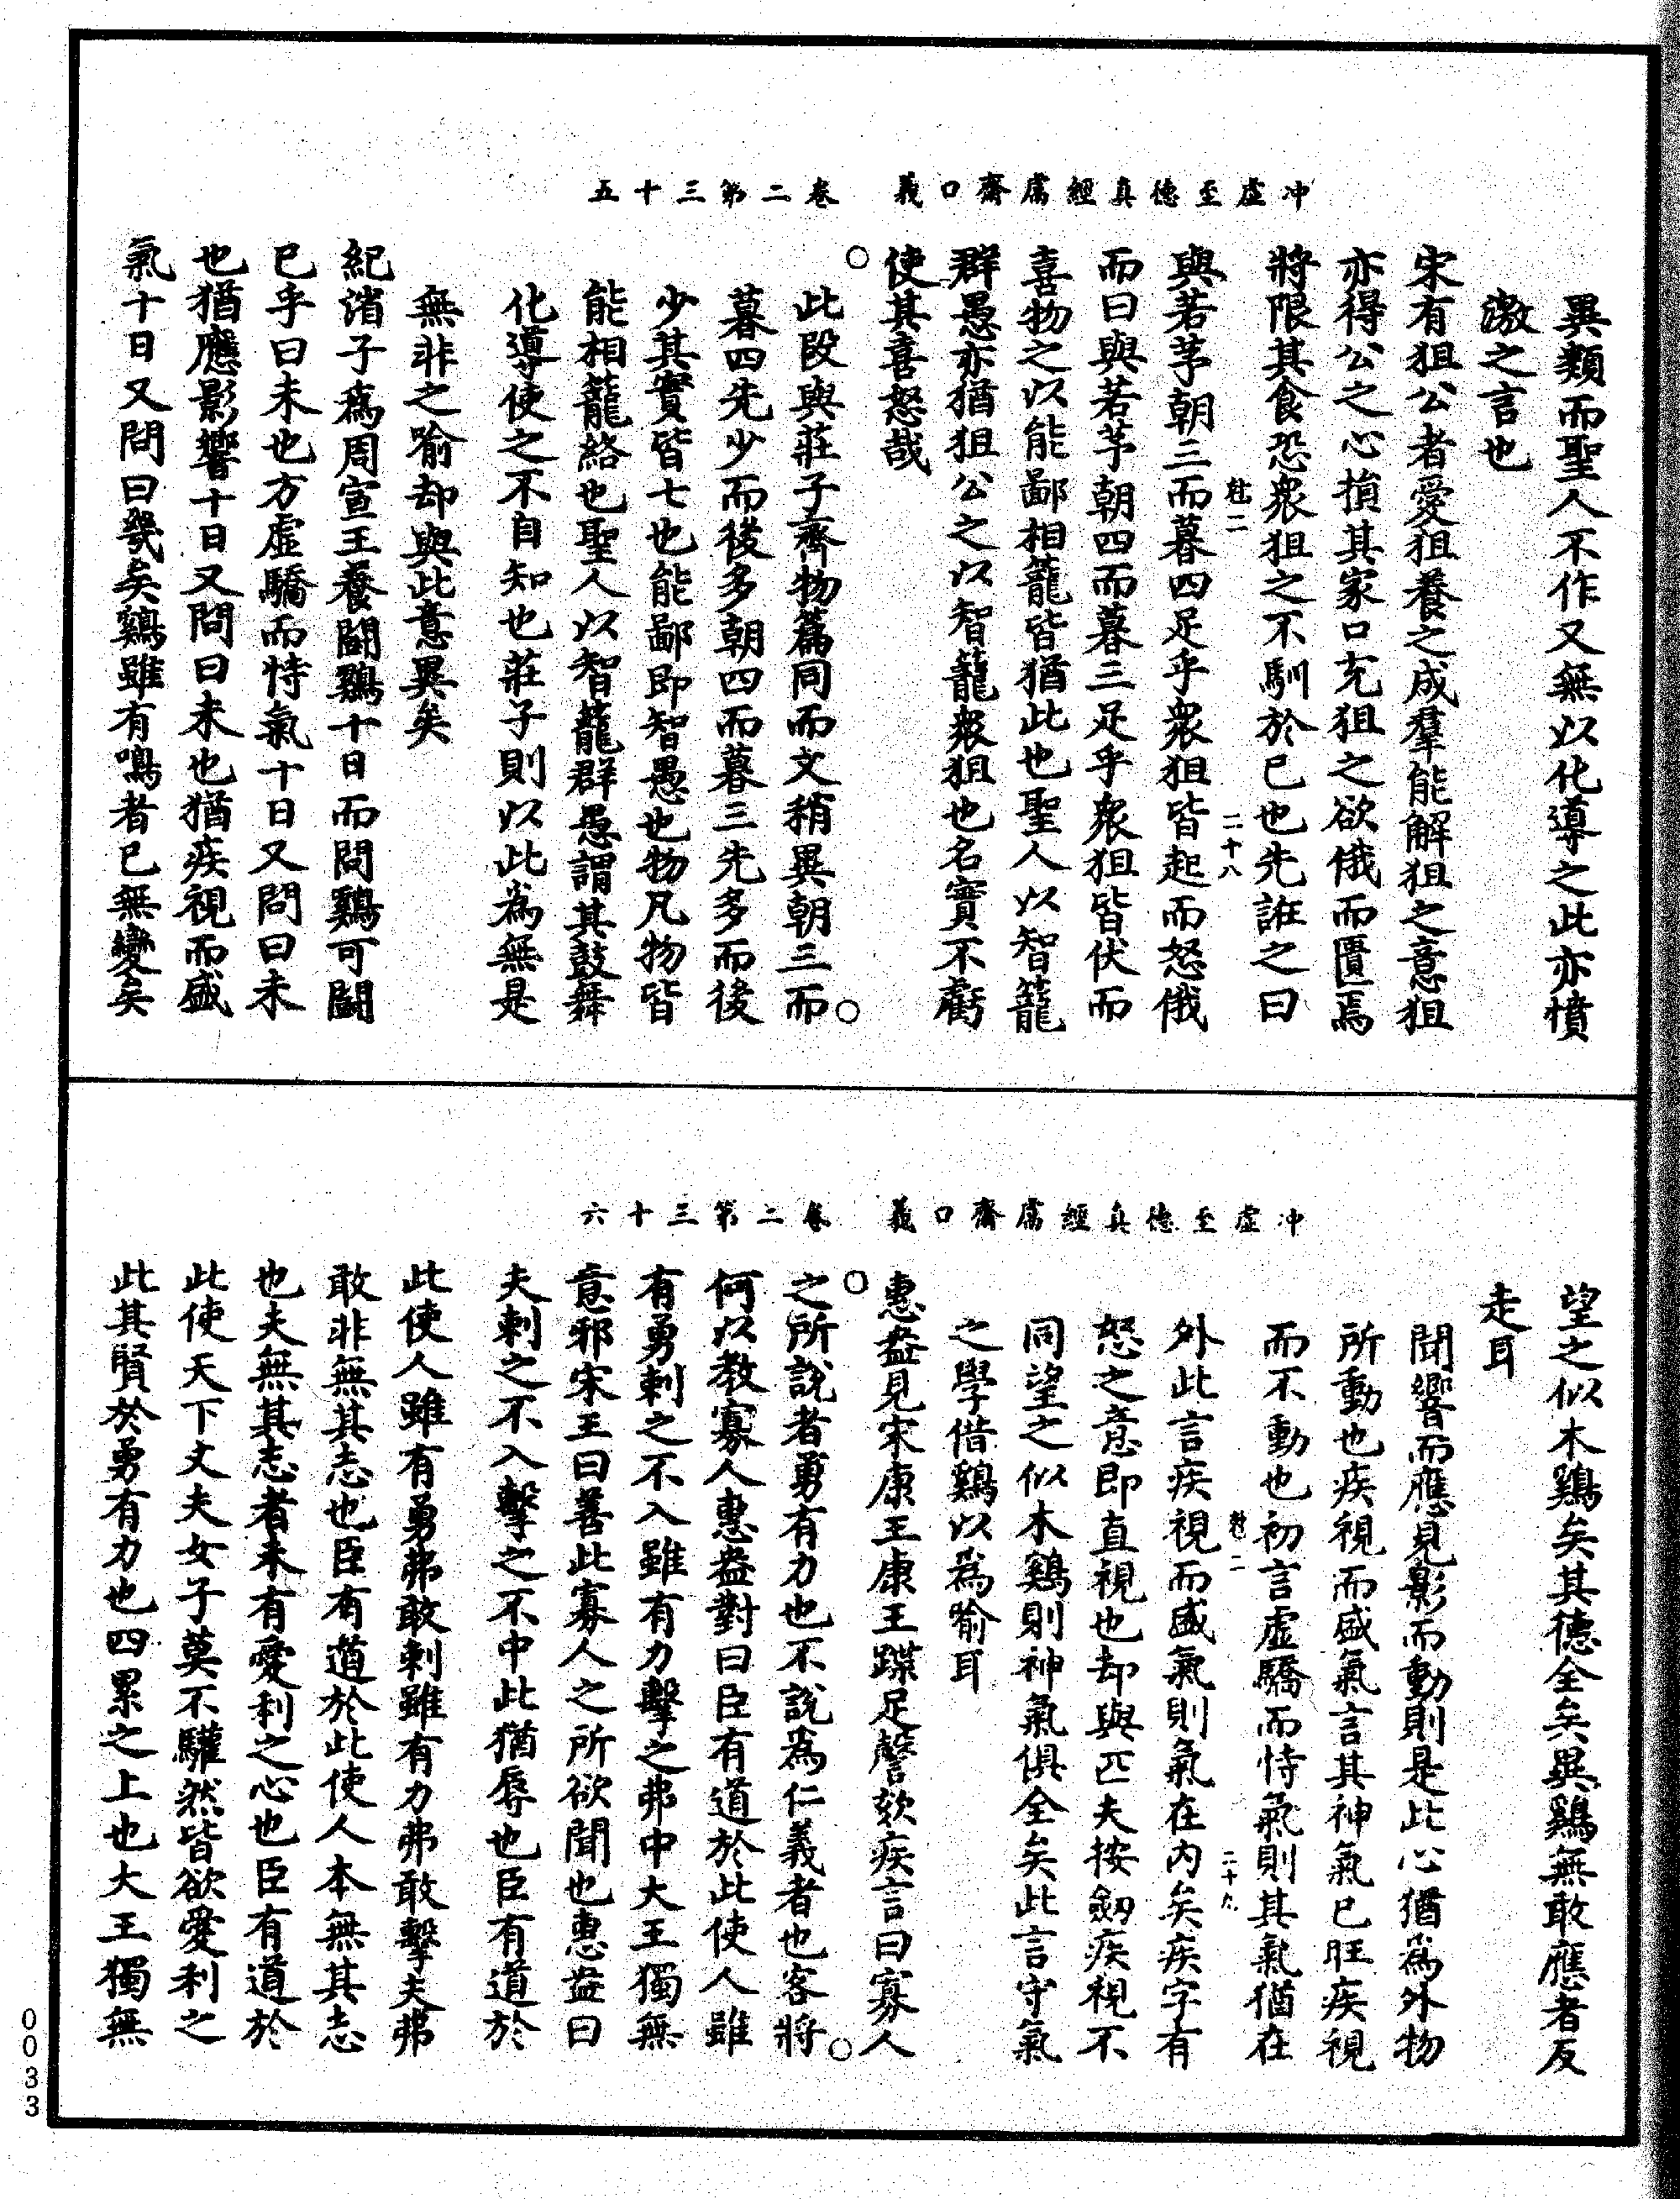 冲虛至德真經鬳齋口義　卷二第三十五
異類而聖人不作又無以化導之此亦憤
激之言也
宋有狙公者愛狙養之成羣能解狙之意狙
亦得公之心損其家口充狙之欲俄而匱焉
將限其食恐衆狙之不馴於已也先誑之曰
二　二十八
與若芧朝三而暮四足乎衆狙皆起而怒俄
而曰與若芧朝四而暮三足乎衆狙皆伏而
喜物之以能鄙相籠皆猶此也聖人以智籠
群愚亦猶狙公之以智籠衆狙也名實不虧
使其喜怒哉
○此段與莊子齊物篇同而文稍異朝三而○
暮四先少而後多朝四而暮三先多而後
少其實皆七也能鄙即智愚也物凡物皆
能相籠絡也聖人以智籠群愚謂其鼓舞
化導使之不自知也莊子則以此為無是
無非之喻却與此意異矣
紀渻子爲周宣王養鬪鷄十日而問鷄可鬪
已乎曰未也方虛驕而恃氣十日又問曰未
也猶應影響十日又問曰未也猶疾視而盛
氣十日又問曰幾矣鷄雖有鳴者已無變矣
冲虛至德真經鬳齋口義　卷二第三十六
望之似木鷄矣其德全矣異鷄無敢應者反
走耳
聞響而應見影而動則是此心猶為外物
所動也疾視而盛氣言其神氣已旺疾視
而不動也初言虛驕而恃氣則其氣猶在
二　二十九
外此言疾視而盛氣則氣在内矣疾字有
怒之意即直視也却與匹夫按劒疾視不
同望之似木鷄則神氣俱全矣此言守氣
之學借鷄以為喻耳
惠盎見宋康王康王蹀足謦欬疾言曰寡人
○之所說者勇有力也不說為仁義者也客將○
何以教寡人惠盎對曰臣有道於此使人雖
有勇刺之不入雖有力擊之弗中大王獨無
意邪宋王曰善此寡人之所欲聞也惠盎曰
夫刺之不入擊之不中此猶辱也臣有道於
此使人雖有勇弗敢刺雖有力弗敢擊夫弗
敢非無其志也臣有道於此使人本無其志
也夫無其志者未有愛利之心也臣有道於
此使天下丈夫女子莫不驩然皆欲愛利之
此其賢於勇有力也四累之上也大王獨無
0033